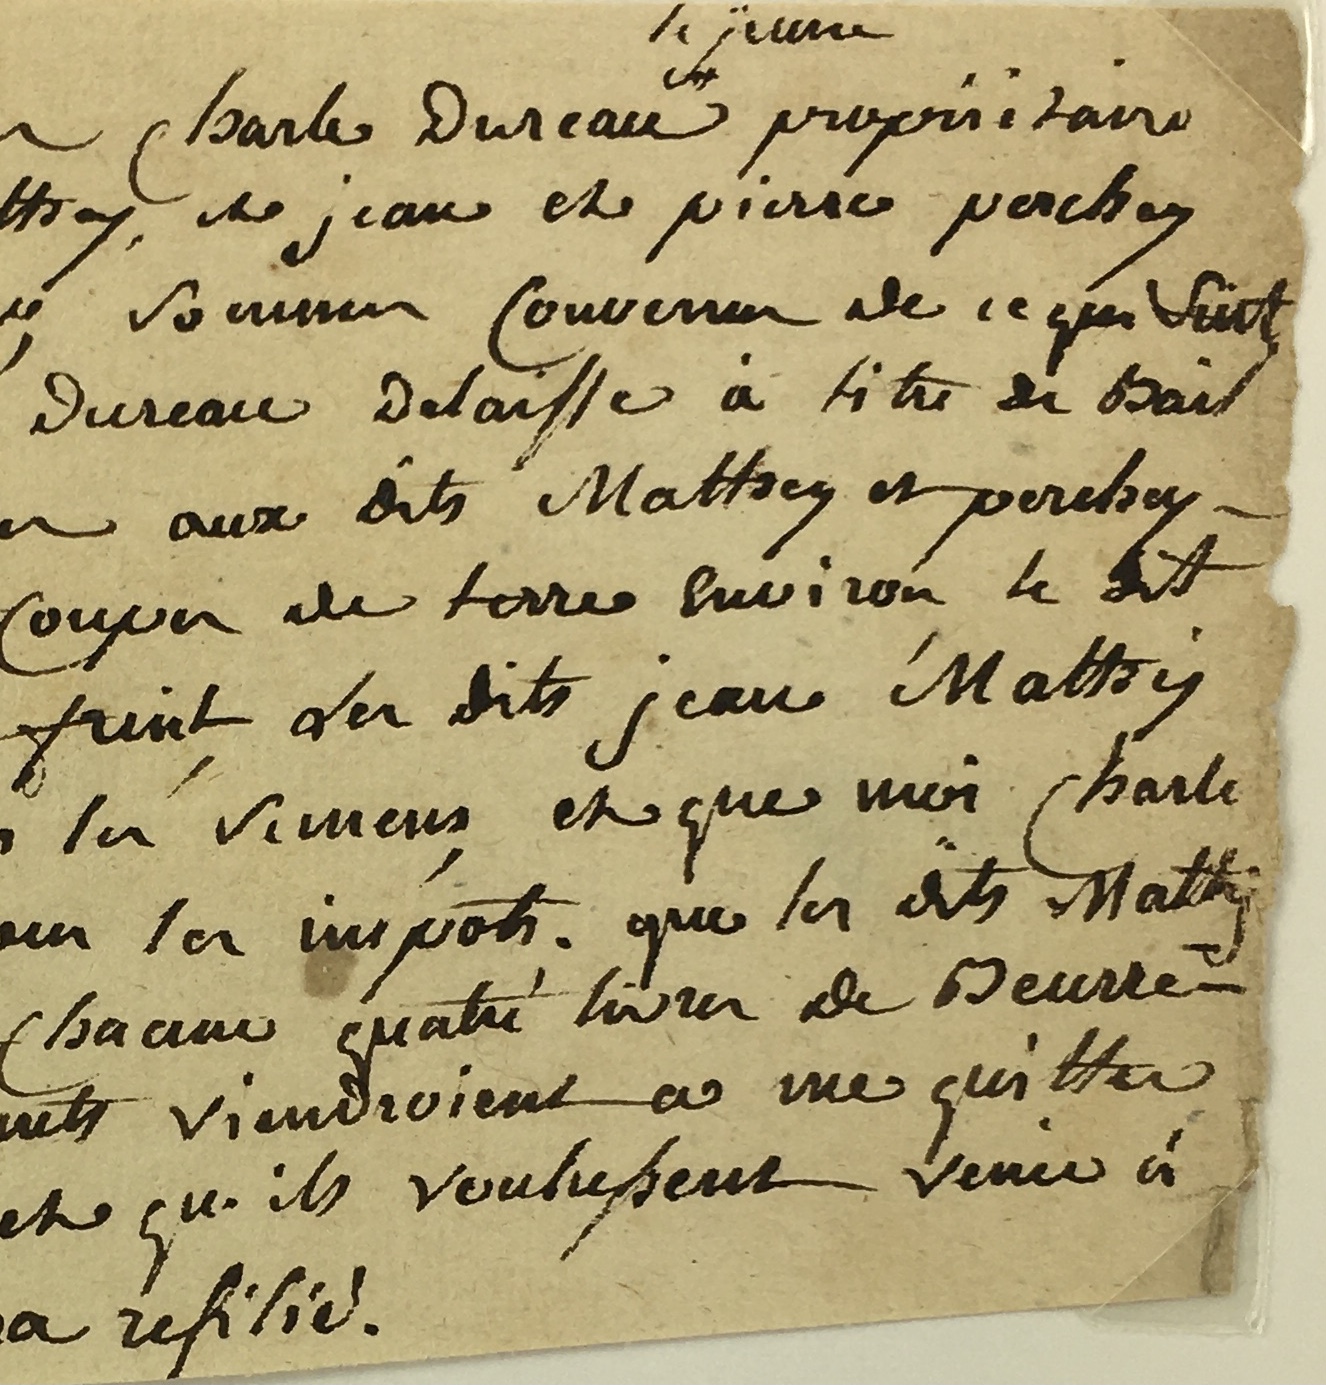 le jeune
Charle Dureau propriietaire
et jean et pierre perchey
sommes Convenus de ce qui Suit
Dureau Delaisse à titre de Bail
aux dits Matthey et perchey
Coupes de terre Environ le dit
fruit des dits jean Matthey
les semens, et que moi Charle
les impots. que les dits Matthey
Chacune quatre livres de Beurre
viendroient a me quitter
et qu'ils voulussent venir à
resilié.